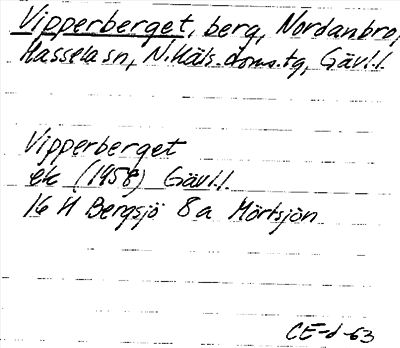 Vipperberget, berg, Nordanbro,
Hassela sn, N.Häls. doms.tg, Gävl.l.
Vipperberget
ek (1958) Gävl.l.
16 H Bergsjö 8a Mörtsjön
CE-d-63